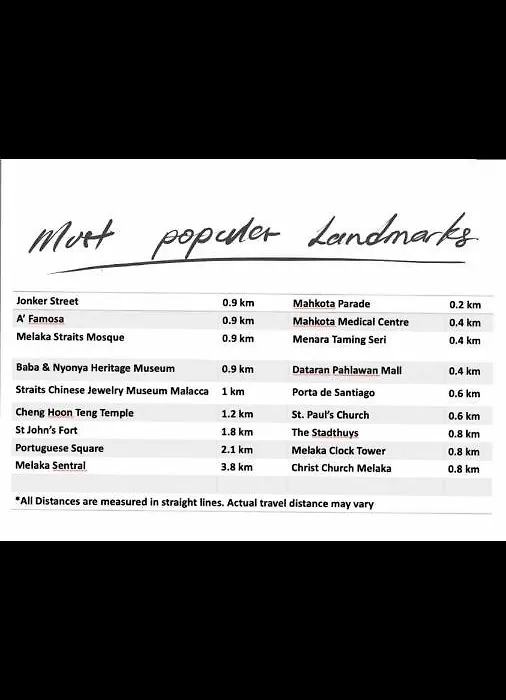 Most populer Landmarks
Jonker Street 0.9 km Mahkota Parade 0.2 km
A’ Famosa 0.9 km Mahkota Medical Centre 0.4 km
Melaka Straits Mosque 0.9 km Menara Taming Seri 0.4 km
Baba & Nyonya Heritage Museum 0.9 km Dataran Pahlawan Mall 0.4 km
Straits Chinese Jewelry Museum Malacca 1 km Porta de Santiago 0.6 km
Cheng Hoon Teng Temple 1.2 km St. Paul’s Church 0.6 km
St John’s Fort 1.8 km The Stadthuys 0.8 km
Portuguese Square 2.1 km Melaka Clock Tower 0.8 km
Melaka Sentral 3.8 km Christ Church Melaka 0.8 km
*All Distances are measured in straight lines. Actual travel distance may vary